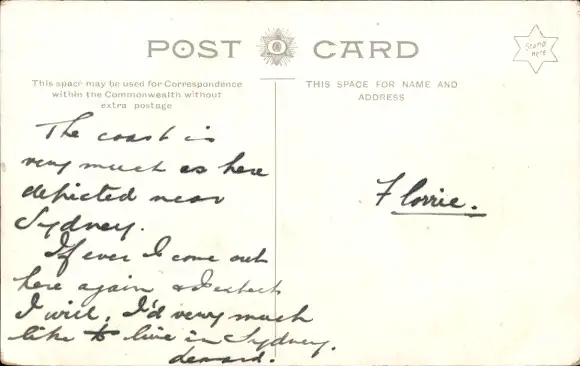 POST CARD
Stamp here
This space may be used for Correspondence
within the Commonwealth without
extra postage
THIS SPACE FOR NAME AND
ADDRESS
The coast is
very much as here
depicted near
Sydney.
If ever I come out
here again & I expect
I will, I'd very much
like to live in Sydney.
Florrie.